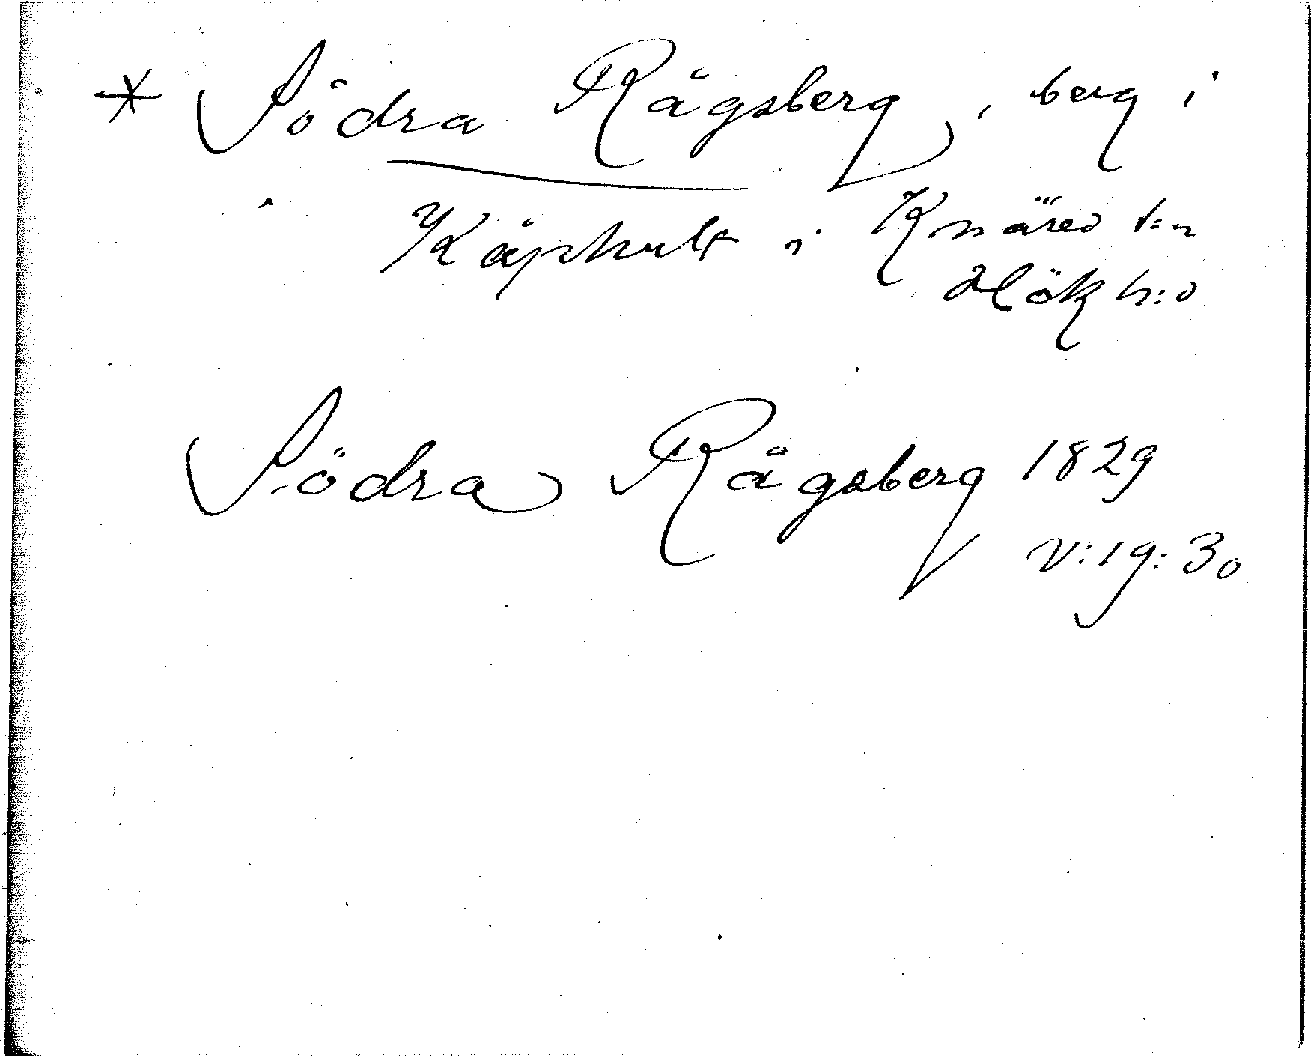 * Södra Rågsberg, berg i
Kåphult i Knäred s:n
Hök h:d
Södra Rågsberg 1829
V:19:30